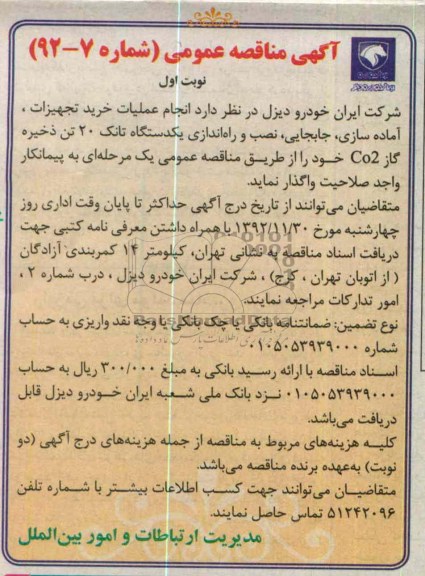 آگهی مناقصه عمومی (شماره ۷-۹۲)
نوبت اول
شرکت ایران خودرو دیزل در نظر دارد انجام عملیات خرید تجهیزات ،
آماده سازی، جابجایی، نصب و راه‌اندازی یکدستگاه تانک ۲۰ تن ذخیره
گاز Co2 خود را از طریق مناقصه عمومی یک مرحله‌ای به پیمانکار
واجد صلاحیت واگذار نماید.
متقاضیان می‌توانند از تاریخ درج آگهی حداکثر تا پایان وقت اداری روز
چهارشنبه مورخ ۱۳۹۲/۱۱/۳۰ با همراه داشتن معرفی نامه کتبی جهت
دریافت اسناد مناقصه به نشانی تهران، کیلومتر ۱۴ کمربندی آزادگان
( از اتوبان تهران ، کرج) ، شرکت ایران خودرو دیزل ، درب شماره ۲ ،
امور تدارکات مراجعه نمایند.
نوع تضمین: ضمانتنامه بانکی یا چک بانکی یا وجه نقد واریزی به حساب
شماره ۰۱۰۵۰۵۳۹۳۹۰۰۰
اسناد مناقصه با ارائه رسید بانکی به مبلغ ۳۰۰/۰۰۰ ریال به حساب
۰۱۰۵۰۵۳۹۳۹۰۰۰ نزد بانک ملی شعبه ایران خودرو دیزل قابل
دریافت می‌باشد.
کلیه هزینه‌های مربوط به مناقصه از جمله هزینه‌های درج آگهی (دو
نوبت) به‌عهده برنده مناقصه می‌باشد.
متقاضیان می‌توانند جهت کسب اطلاعات بیشتر با شماره تلفن
۵۱۲۴۲۰۹۶ تماس حاصل نمایند.
مدیریت ارتباطات و امور بین‌الملل